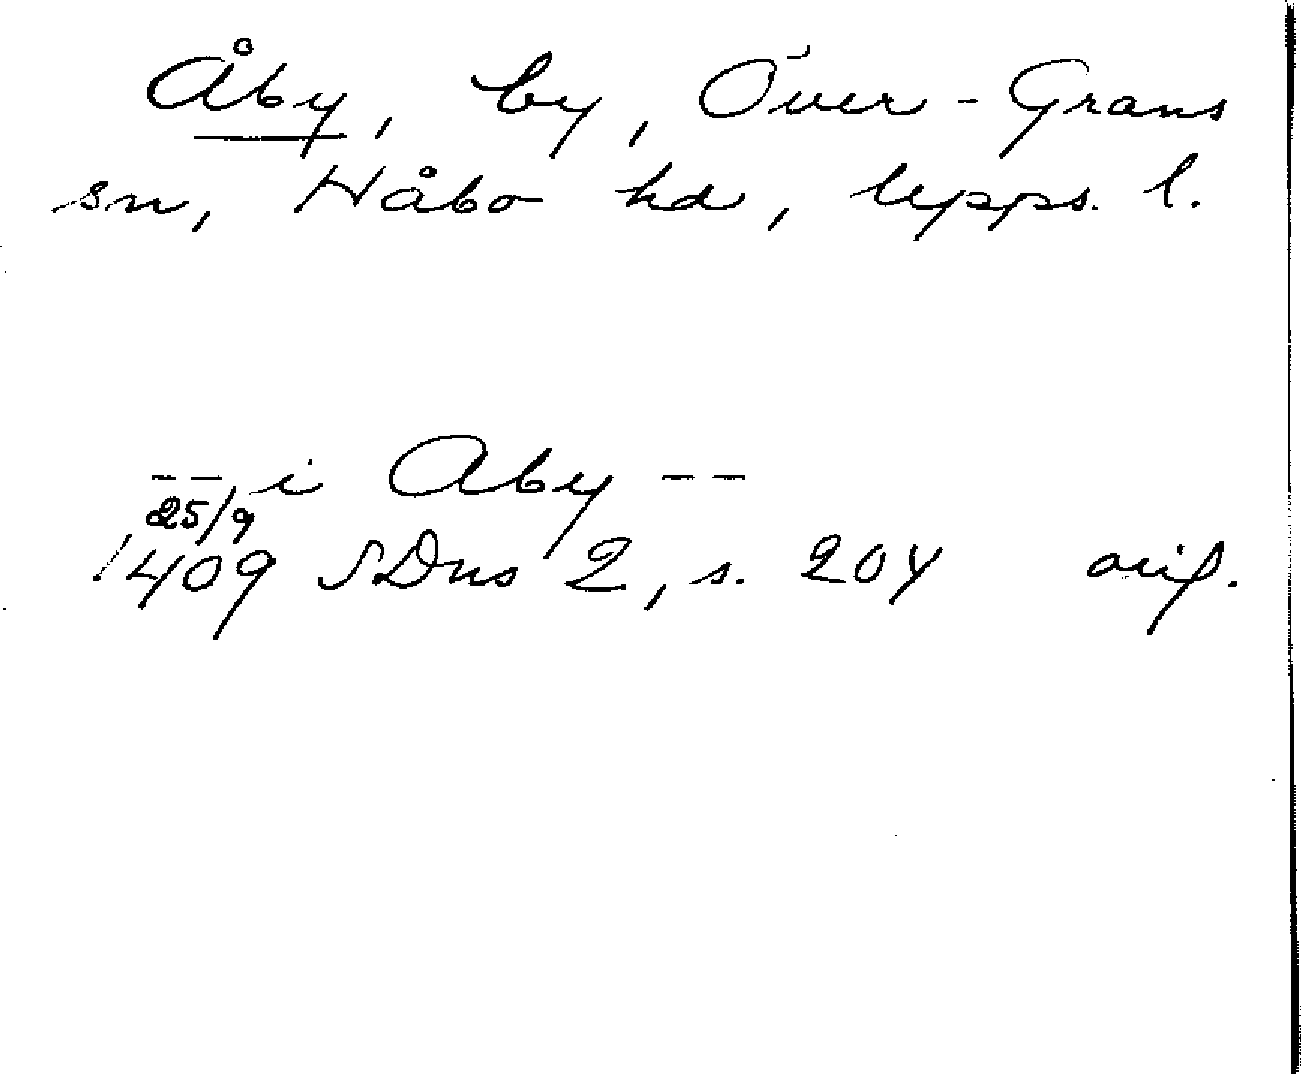 Åby, by, Över-Grans
sn, Håbo hd, Upps. l.
-- i Aby --
25/9
1409 SDns 2, s. 204 orig.